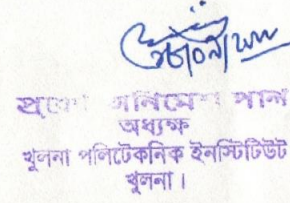 অনিমেষ পাল
অধ্যক্ষ
খুলনা পলিটেকনিক ইনস্টিটিউট
খুলনা।